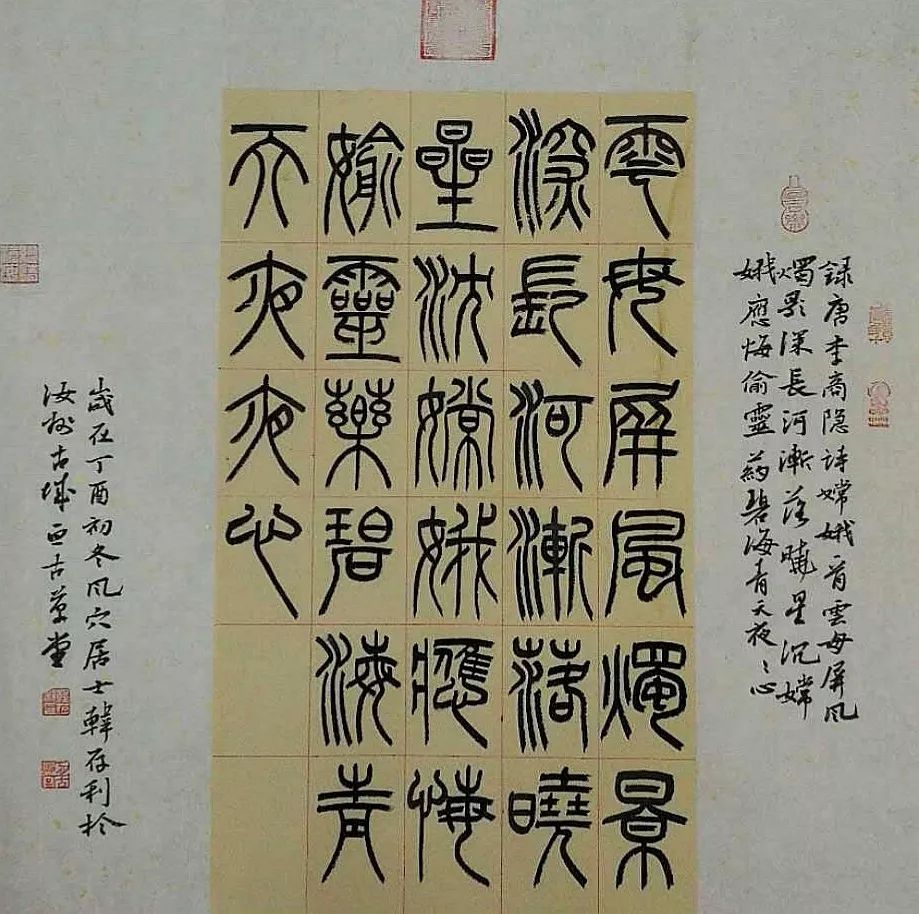 雲母屏風燭景
深長河漸落曉
星沈嫦娥應悔
媮靈藥碧海青
天夜夜心
録唐李商隐诗嫦娥首雲母屏风
燭影深長河漸落曉星沉嫦
娥應悔偷靈药碧海青天夜々心
歲在丁酉初冬风穴居士韓存利於
汝州古城亘古草堂